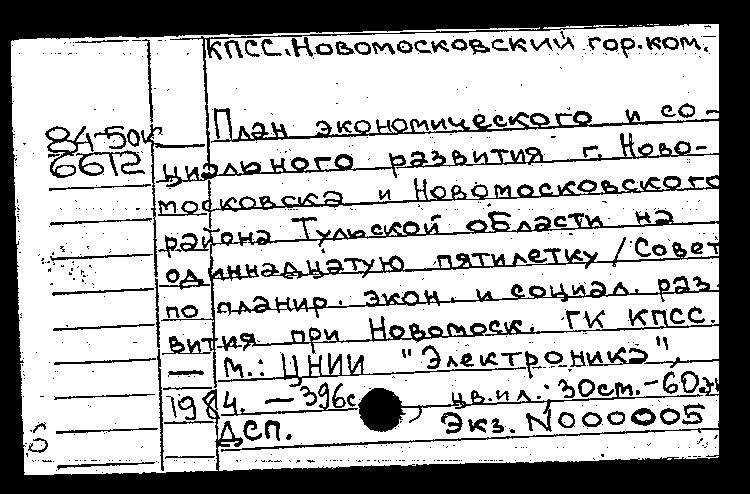 КПСС. Новомосковский гор.ком.
84-50к
6612
План экономического и со-
циального развития г. Ново-
московска и Новомосковского
района Тульской области на
одиннадцатую пятилетку / Совет
по планир. экон. и социал. раз-
вития при Новомоск. ГК КПСС.
— М.: ЦНИИ "Электроника",
1984. — 396с цв.ил.; 30см. - 60
ДСП. Экз. N000005